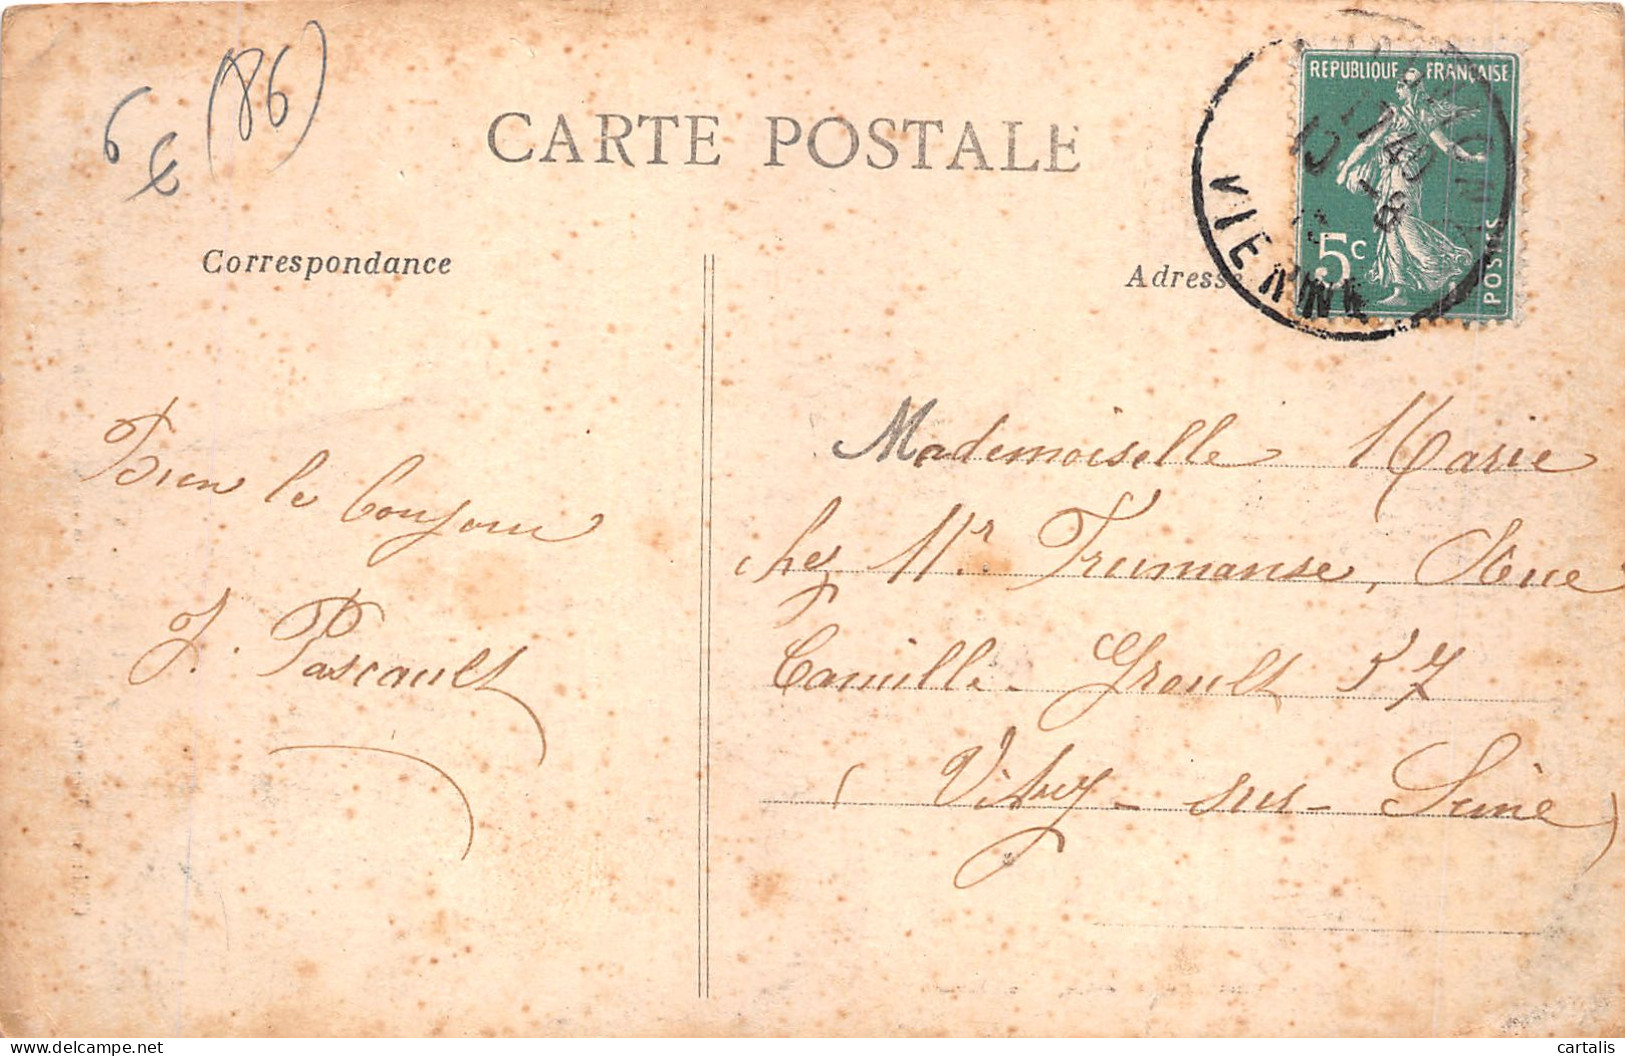 6 € (86)
CARTE POSTALE
RÉPUBLIQUE FRANÇAISE
5c
POSTES
VIENNE
Correspondance
Adresse
Bien le bonjour
J. Pascault
Mademoiselle Marie
chez Mr Trumanse, Rue
Camille Groult 57
(Vitry-sur-Seine)
delcampe.net
cartalis